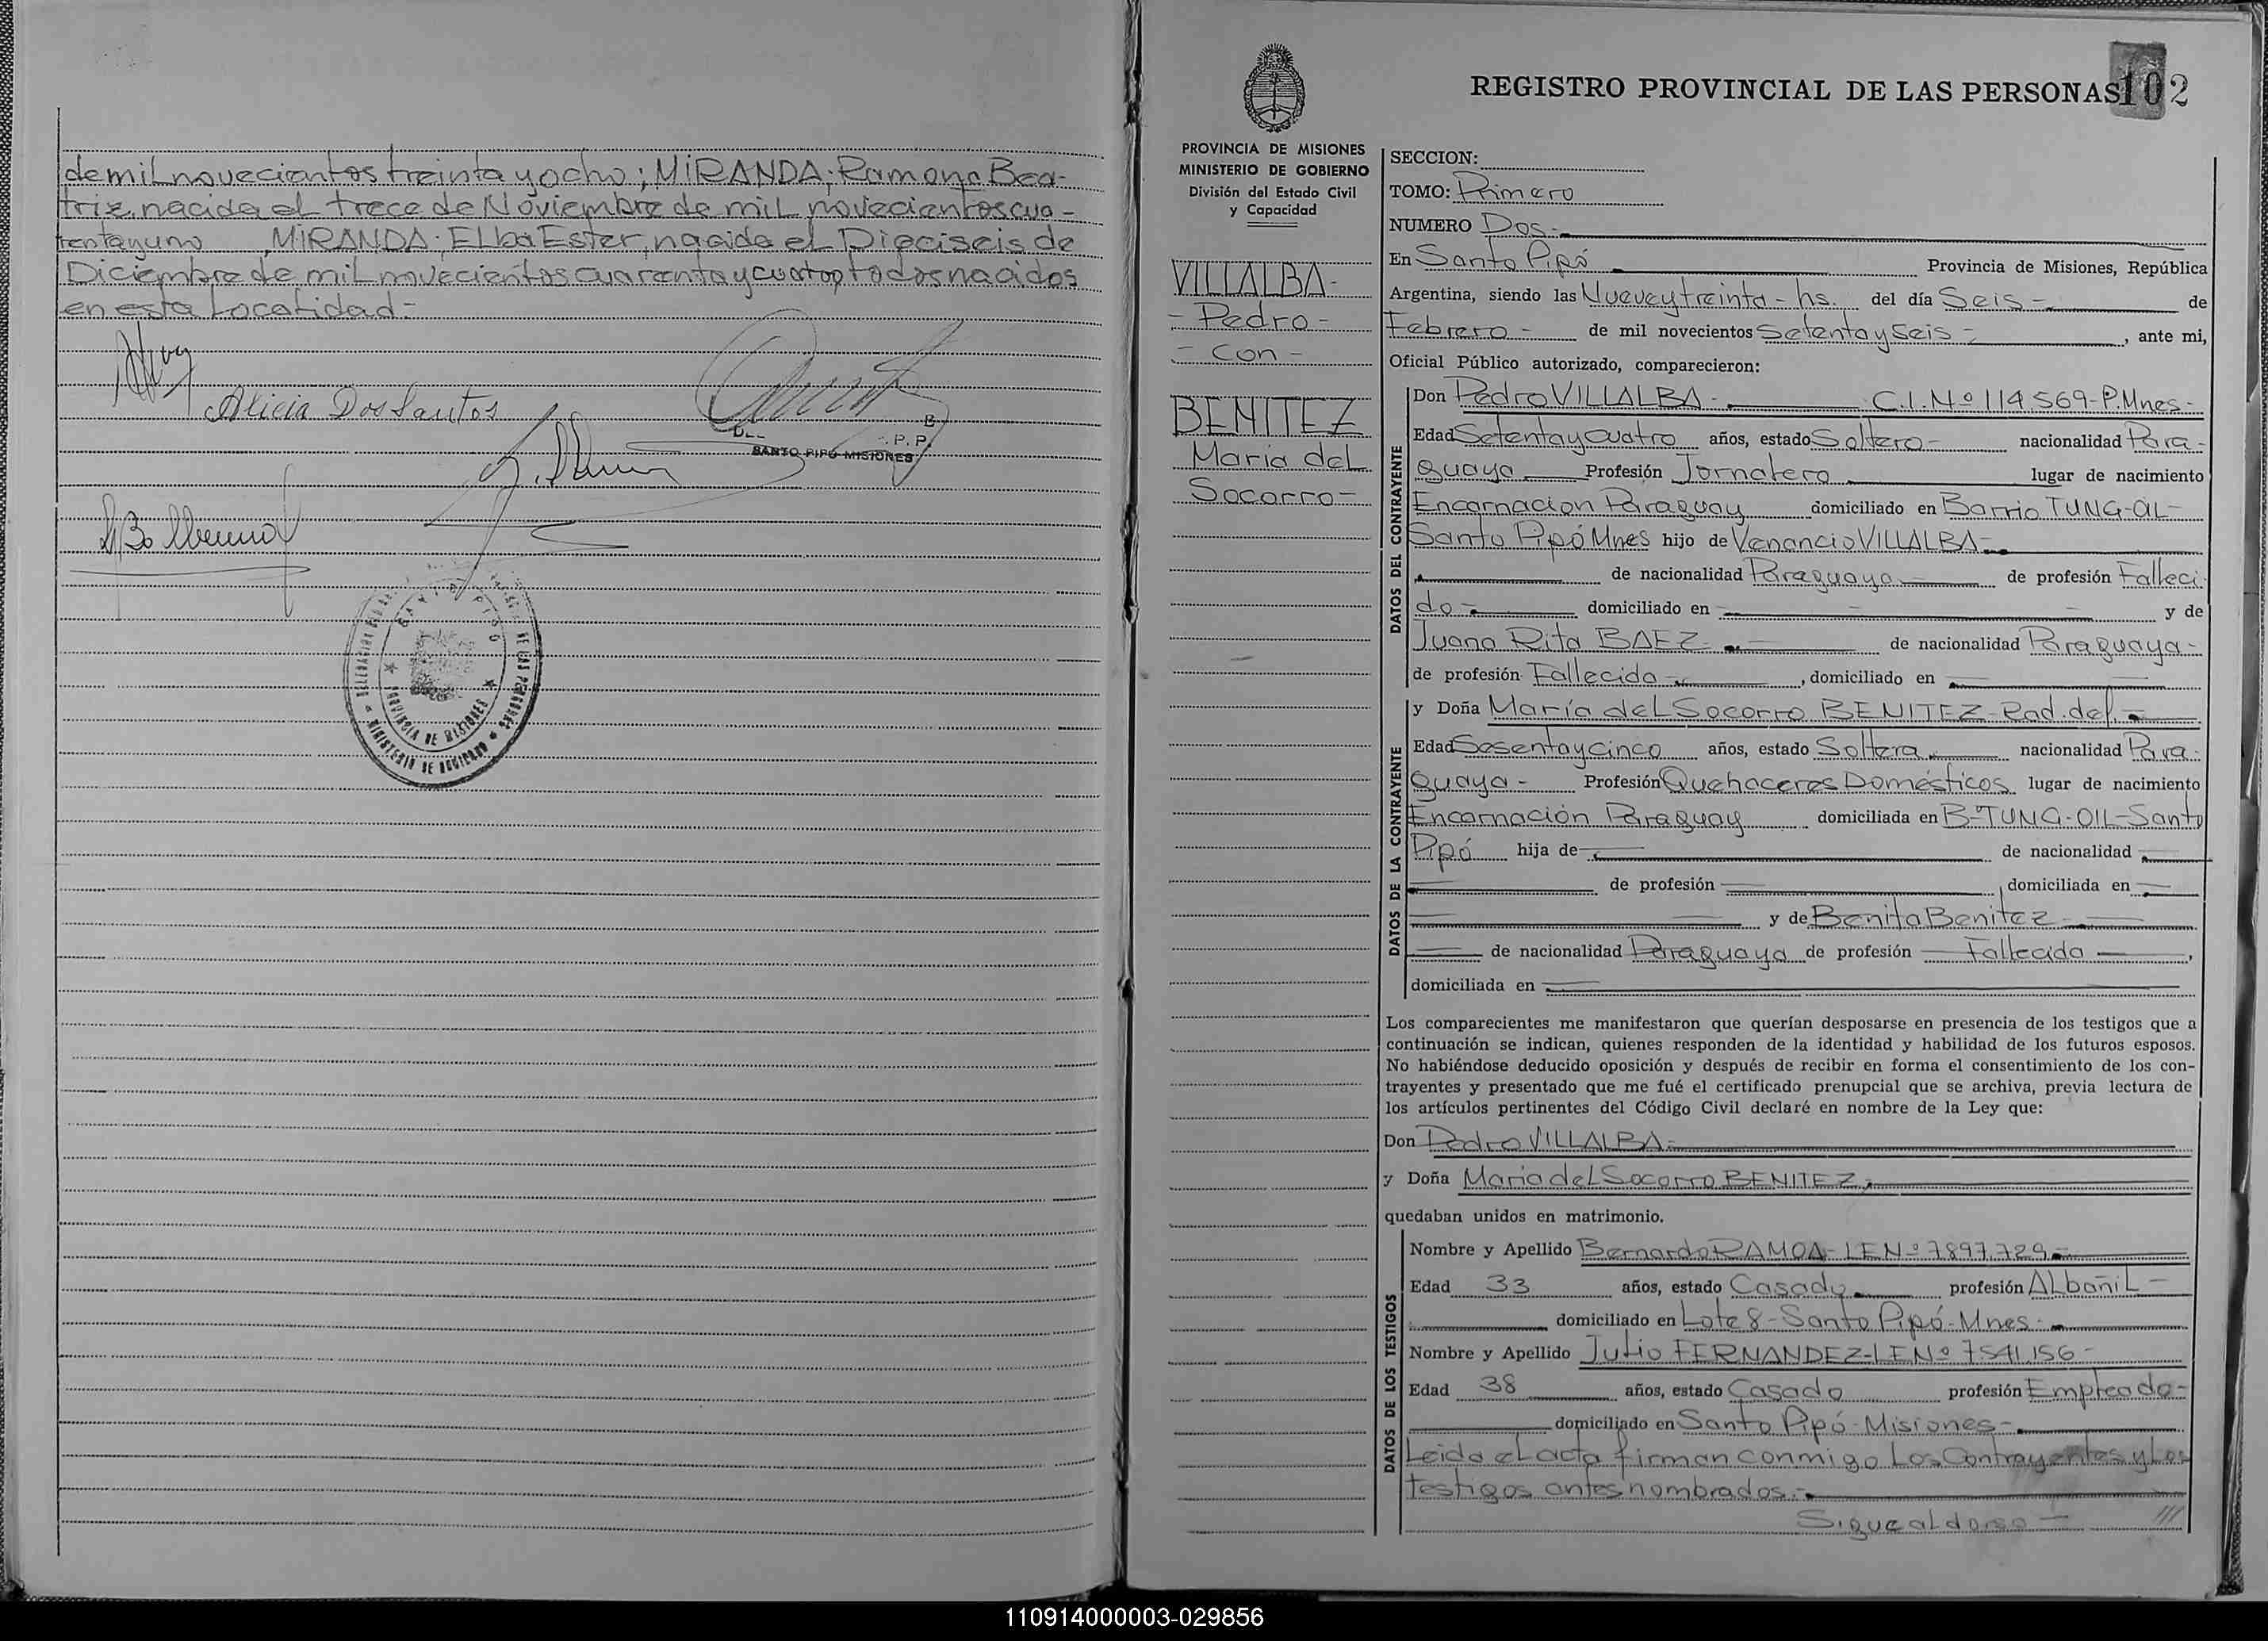 de mil novecientos treinta y ocho; MIRANDA; Ramona Bea-
triz, nacida el trece de Noviembre de mil novecientos cua-
renta y uno, MIRANDA; Elba Ester, nacida el Dieciseis de
Diciembre de mil novecientos cuarenta y cuatro, todos nacidos
en esta Localidad.-
Alicia Dos Santos
SANTO PIPÓ MISIONES
PROVINCIA DE MISIONES
MINISTERIO DE GOBIERNO
102
REGISTRO PROVINCIAL DE LAS PERSONAS
PROVINCIA DE MISIONES
MINISTERIO DE GOBIERNO
División del Estado Civil
y Capacidad
VILLALBA-
- Pedro -
- con -
BENITEZ
María del
Socorro-
SECCION:
TOMO: Primero
NUMERO Dos.-
En Santo Pipó Provincia de Misiones, República
Argentina, siendo las Nueve y treinta - hs. del día Seis - de
Febrero - de mil novecientos Setenta y Seis -, ante mi,
Oficial Público autorizado, comparecieron:
DATOS DEL CONTRAYENTE
Don Pedro VILLALBA - C.I. Nº 114.569- P.Mnes-
Edad Setenta y Cuatro años, estado Soltero- nacionalidad Para-
guaya Profesión Jornalero lugar de nacimiento
Encarnacion Paraguay domiciliado en Barrio TUNG-OIL-
Santo Pipó Mnes hijo de Venancio VILLALBA-
de nacionalidad Paraguaya de profesión Falleci
do - domiciliado en y de
Juana Rita BAEZ de nacionalidad Paraguaya-
de profesión Fallecida, domiciliado en
DATOS DE LA CONTRAYENTE
y Doña María del Socorro BENITEZ- Rad. def.-
Edad Sesenta y cinco años, estado Soltera nacionalidad Para-
guaya - Profesión Quehaceres Domésticos lugar de nacimiento
Encarnación Paraguay domiciliada en B-TUNG-OIL-Santo
Pipó hija de de nacionalidad
de profesión, domiciliada en
y de Benita Benitez
de nacionalidad Paraguaya de profesión Fallecida,
domiciliada en
Los comparecientes me manifestaron que querían desposarse en presencia de los testigos que a
continuación se indican, quienes responden de la identidad y habilidad de los futuros esposos.
No habiéndose deducido oposición y después de recibir en forma el consentimiento de los con-
trayentes y presentado que me fué el certificado prenupcial que se archiva, previa lectura de
los artículos pertinentes del Código Civil declaré en nombre de la Ley que:
Don Pedro VILLALBA-
y Doña Maria del Socorro BENITEZ,
quedaban unidos en matrimonio.
DATOS DE LOS TESTIGOS
Nombre y Apellido Bernardo RAMOA- LE Nº 7897.729-
Edad 33 años, estado Casado profesión ALbañiL-
domiciliado en Lote 8 - Santo Pipó- Mnes-
Nombre y Apellido Julio FERNANDEZ- LE Nº 7541.156-
Edad 38 años, estado Casado profesión Empleado-
domiciliado en Santo Pipó- Misiones-
Leída el acta firman conmigo Los Contrayentes y Los
testigos antes nombrados.-
Sigue al dorso - ///
110914000003-029856